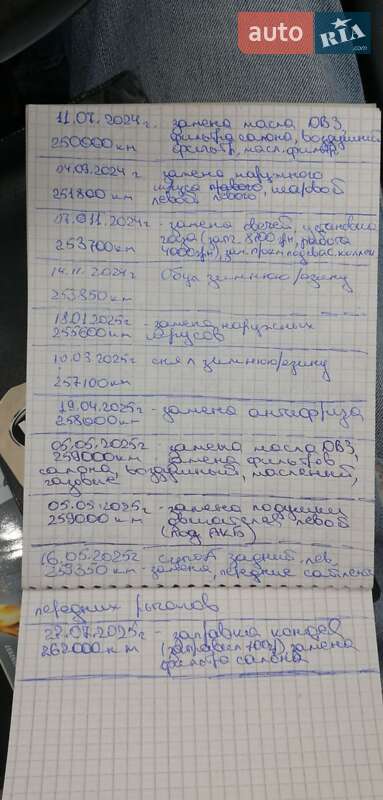 auto RIA.com
11.07.2024г. замена масла ДВЗ,
250000 км фильтра салона, воздушный
фильтр, масл. фильтр
04.09.2024г замена наружного
251800 км шруса правого, шаровой
левой
07.011.2024г - замена свечей, установка
253700 км газа (запч. 8700 грн, работа
4000 грн), зам.
14.11.2024г Обул зимнюю резину
253850 км
18.01.2025г - замена наружных
255600 км шрусов
10.03.2025г снял зимнюю резину
257100 км
19.04.2025г - замена антифриза
258600 км
05.05.2025г - замена масла ДВЗ,
259000 км замена фильтров
салона, воздушный, масленый,
газовые
05.05.2025г - замена подушки
259000 км двигателя левой
(под АКБ)
16.05.2025г задний лев.
259350 км - замена, передние
передних рычагов
22.07.2025г - заправка кондея
262000 км замена
фильтра салона